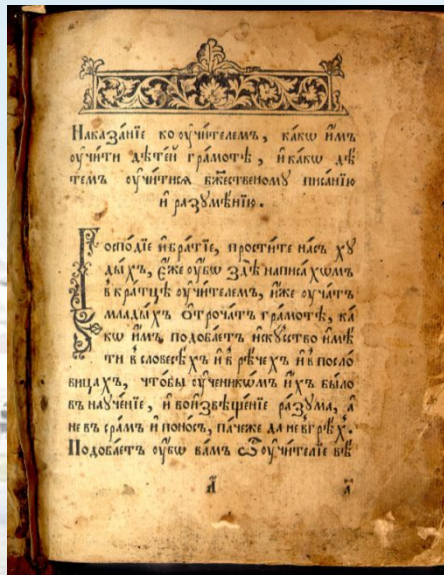 Наказа́нїе ко ᲂу҆чи́телемъ, ка́кѡ и҆̀мъ
ᲂу҆чи́ти дѣте́й гра́мотѣ, и҆ ка́кѡ дѣ́
темъ ᲂу҆чи́тисѧ бж҃е́ственому писа́нїю
и҆ разꙋмѣ́нїю.
Госпо́дїе и҆ бра́тїе, прости́те на́съ хꙋ
ды́хъ, є҆́же ᲂу҆́бѡ здѣ̀ написа́хѡмъ
вкра́тцѣ ᲂу҆чи́телемъ, и҆̀же ᲂу҆ча́тъ
млады́хъ ѻ҆троча́тъ гра́мотѣ, ка́
кѡ и҆̀мъ подоба́етъ и҆скꙋ́ство и҆мѣ́
ти в словесѣ́хъ и҆ в рѣ́чехъ и҆ в посло́
вицахъ, что́бы ᲂу҆ченикѡ́мъ и҆́хъ бы́ло
въ наꙋче́нїе, и҆ во и҆звѣще́нїе ра́зꙋма, а҆
не въ сра́мъ и҆ поно́съ, па́чеже да не в грѣ́хъ.
Подоба́етъ ᲂу҆́бѡ ва́мъ ѽ ᲂу҆чи́телїе вѣ́
а҃ а҃